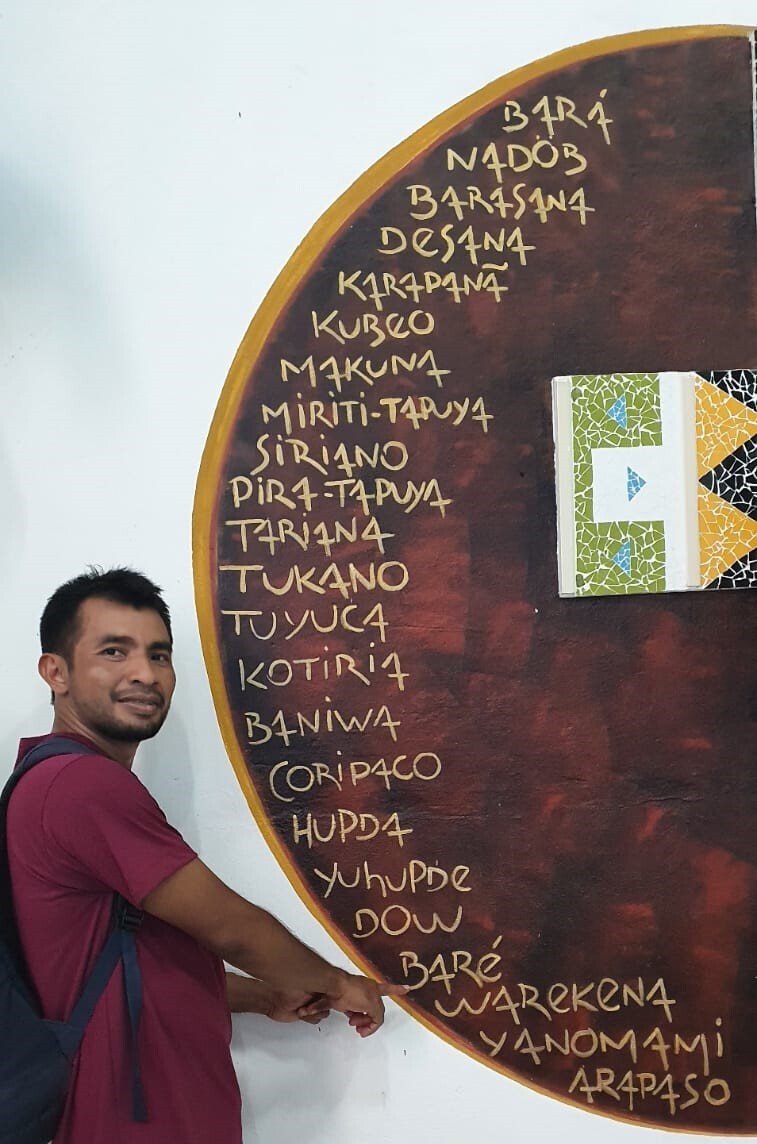 BARÁ
NADÖB
BARASANA
DESANA
KARAPANÃ
KUBEO
MAKUNA
MIRITI-TAPUYA
SIRIANO
PIRA-TAPUYA
TARIANA
TUKANO
TUYUCA
KOTIRIA
BANIWA
CORIPACO
HUPDA
YUhUPDE
DOW
BARÉ
WAREKENA
YANOMAMi
ARAPASO